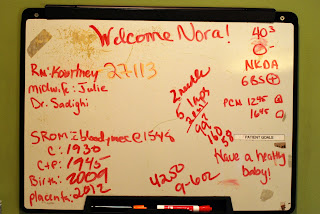 Welcome Nora!
40³
NKDA
GBS+
Rn: Kourtney 27113
Midwife: Julie
Dr. Sadighi
PCN 1245
1645
SROM bloody mec @ 1548
C: 1930
C+P: 1945
Birth: 2009
Placenta: 2012
4250
9-6oz
PATIENT GOALS
Have a healthy
baby!